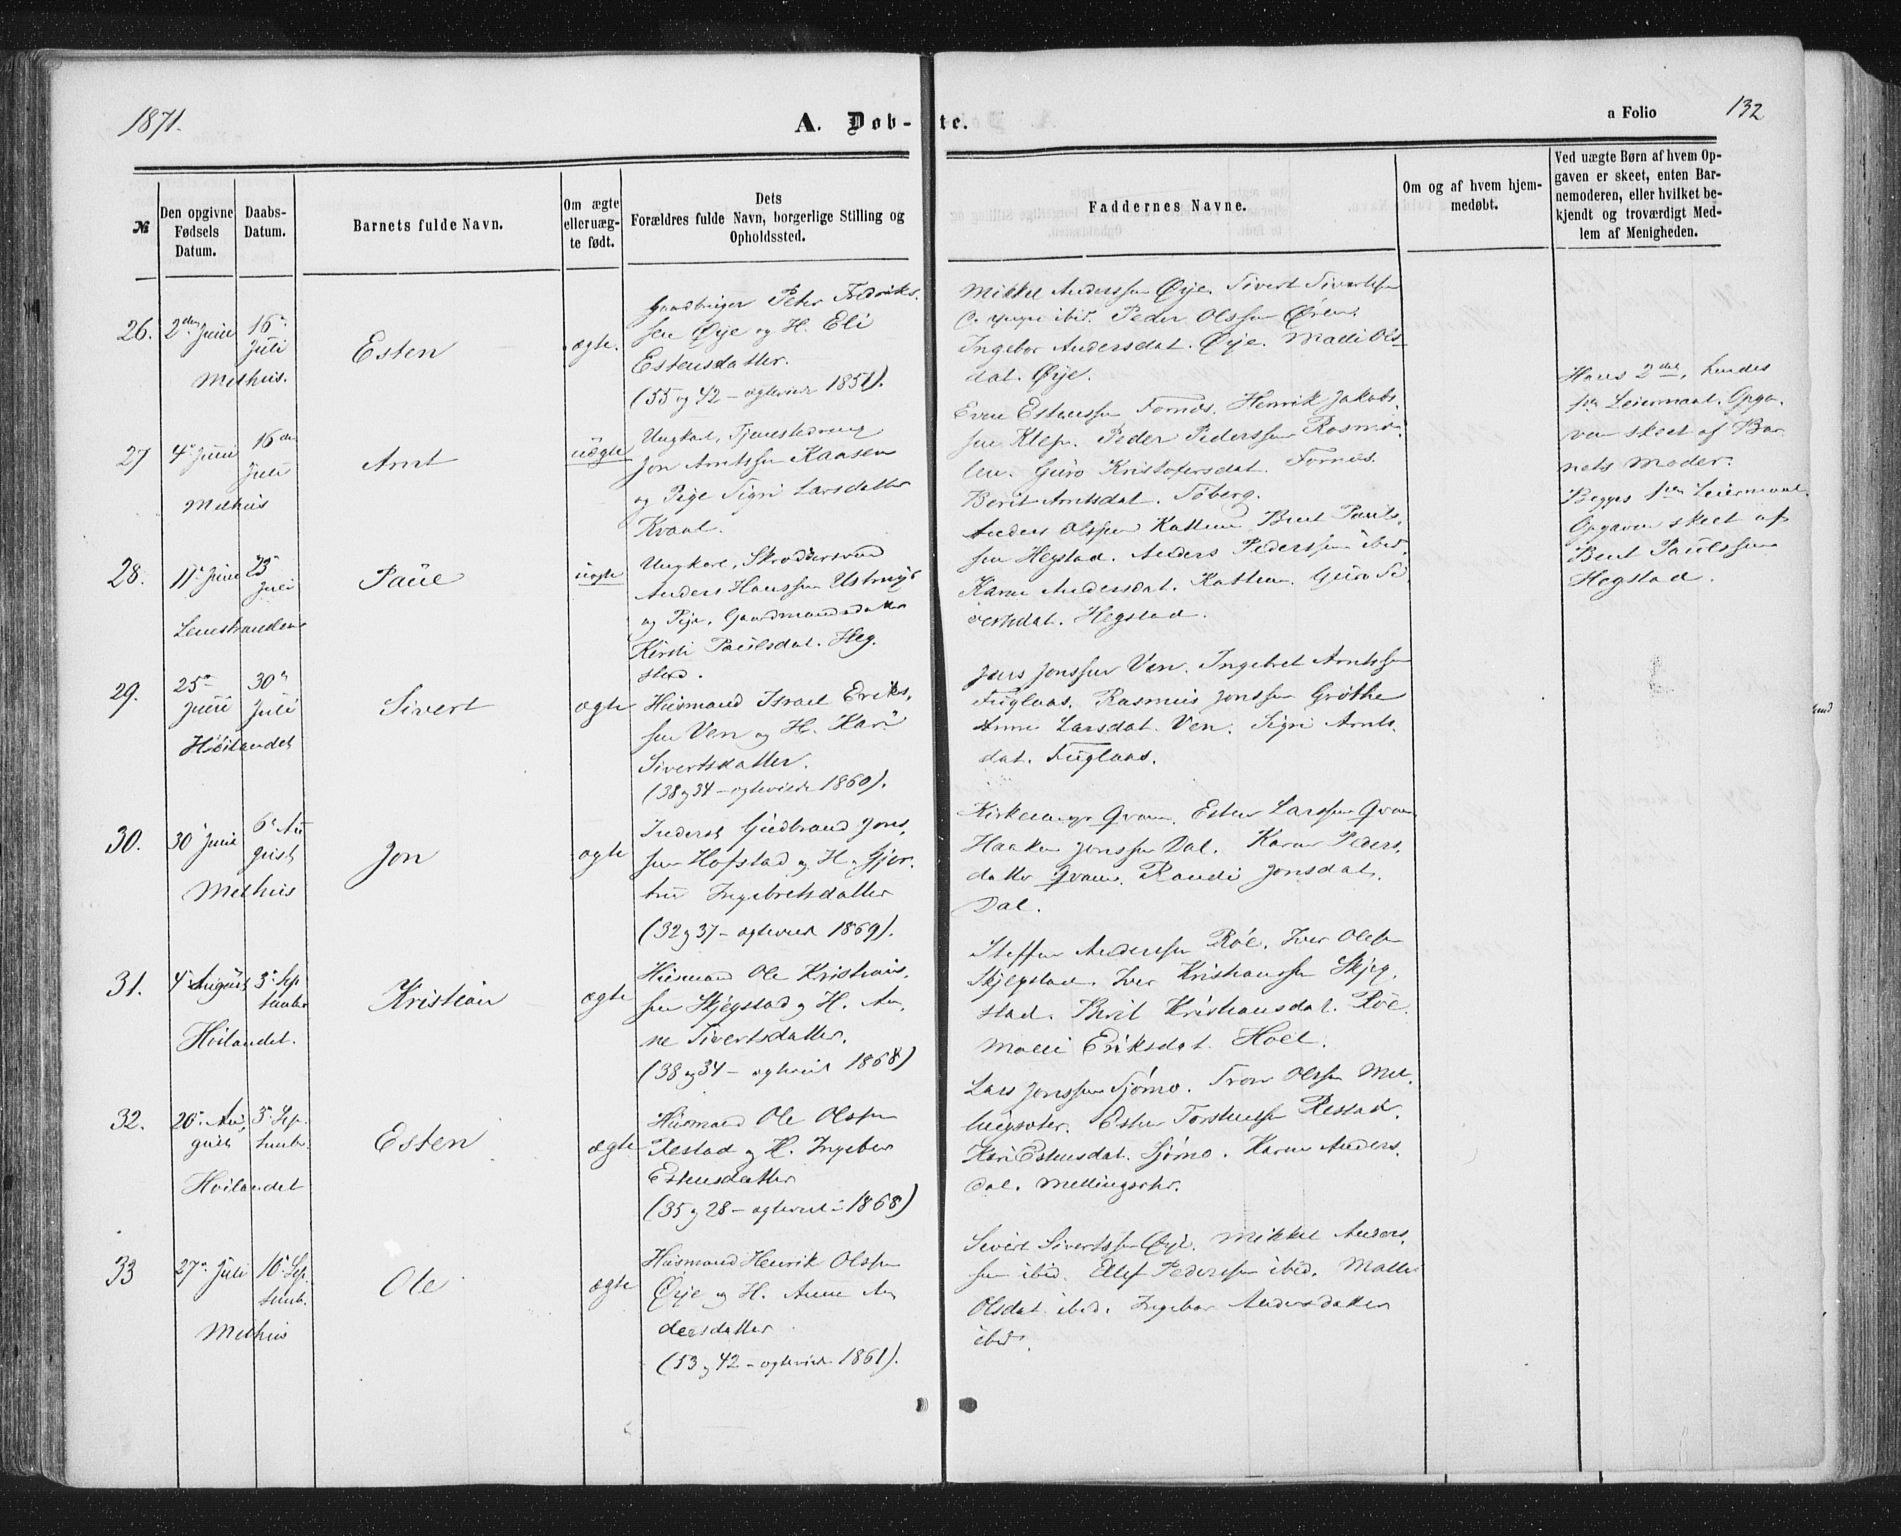 1871.
A. Døb-te.
a Folio 132
№
Den opgivne Fødsels Datum.
Daabs-Datum.
Barnets fulde Navn.
Om ægte eller uægte født.
Dets Forældres fulde Navn, borgerlige Stilling og Opholdssted.
Faddernes Navne.
Om og af hvem hjemmedøbt.
Ved uægte Børn af hvem Opgaven er skeet, enten Barnemoderen, eller hvilket bekjendt og troværdigt Medlem af Menigheden.
26.
2den Juni
Melhus.
16de Juli
Esten
ægte.
Gaardbruger Peter Fredriks-
sen Øye og H. Eli
Estensdatter.
(55 og 42 – ægteviet 1851).
Mikkel Anderssen Øye. Sivert Sivertssen
ibid. Peder Olssen Øren.
Ingebor Andersdat. Øye. Malli Ols-
dat. Øye.
27
4de Juni
Melhus
16de Juli
Arnt
uægte
Ungkarl, Tjenestedreng
Jon Arntssen Kaasen
og Pige Sigri Larsdatter
Kvaal.
Even Estenssen Fornes. Henrik Jakobs-
sen Klep. Peder Pederssen Rosmo-
len. Guro Kristofersdat. Fornes.
Berit Arntsdat. Søberg.
Hans 2det, hendes
1ste Leiermaal. Opga-
ven skeet af Bar-
nets Moder.
28.
11te Juni
Leinstranden
23de Juli
Paul
uægte
Ungkarl, Skræddersvend
Anders Hanssen Ustmyr
og Pige, Gaardmandsdatter
Kirsti Paulsdat. Heg-
stad.
Anders Olssen Kattem. Bent Pauls-
sen Hegstad. Anders Pederssen ibid.
Karen Andersdat. Kattem. Guro Si-
vertsdat. Hegstad.
Begges 1ste Leiermaal.
Opgaven skeet af
Bent Paulssen
Hegstad.
29.
25de Juni
Høilandet
30te Juli
Sivert
ægte
Husmand Israel Eriks-
sen Ven og H. Kari
Sivertsdatter.
(38 og 34 – ægteviede 1860).
Jens Jonssen Ven. Ingebret Arntssen
Fuglaas. Rasmus Jonssen Grøthe
Anne Larsdat. Ven. Sigri Arnts-
dat. Fuglaas.
30.
30te Juni
Melhus
6te August
Jon
ægte
Inderst Gudbrand Jons-
sen Hofstad og H. Gjer-
tru Ingebretsdatter
(32 og 37 – ægteviet 1869).
Kirkesanger Qvam. Esten Larssen Qvam
Haaken Jonssen Dal. Karen Peders-
datter Qvam. Randi Jonsdat.
Dal.
31.
4de August
Høilandet.
3de September
Kristian
ægte
Husmand Ole Kristians-
sen Skjegstad og H. An-
ne Sivertsdatter.
(38 og 34 – ægteviet 1868)
Steffen Anderssen Røe. Iver Olssen
Skjegstad. Iver Kristianssen Skjeg-
stad. Berit Kristiansdat. Røe.
Malli Eriksdat. Hoel.
32.
20de August
Høilandet
3de September
Esten
ægte
Husmand Ole Olssen
Restad og H. Ingebor
Estensdatter
(35 og 28 – ægteviet 1868)
Lars Jonssen Sjømo. Tron Olssen Mel-
lingsæter. Esten Torstenssen Restad.
Kari Estensdat. Sjømo. Karen Anders-
dat. Mellingsætr.
33
27de Juli
Melhus
10de September
Ole
ægte
Husmand Henrik Olssen
Øye og H. Anne An-
dersdatter
(53 og 42 – ægteviede 1861).
Sivert Sivertssen Øye. Mikkel Anders-
sen ibid. Elef Pederssen ibid. Malli
Olsdat. ibid. Ingebor Andersdatter
ibid.